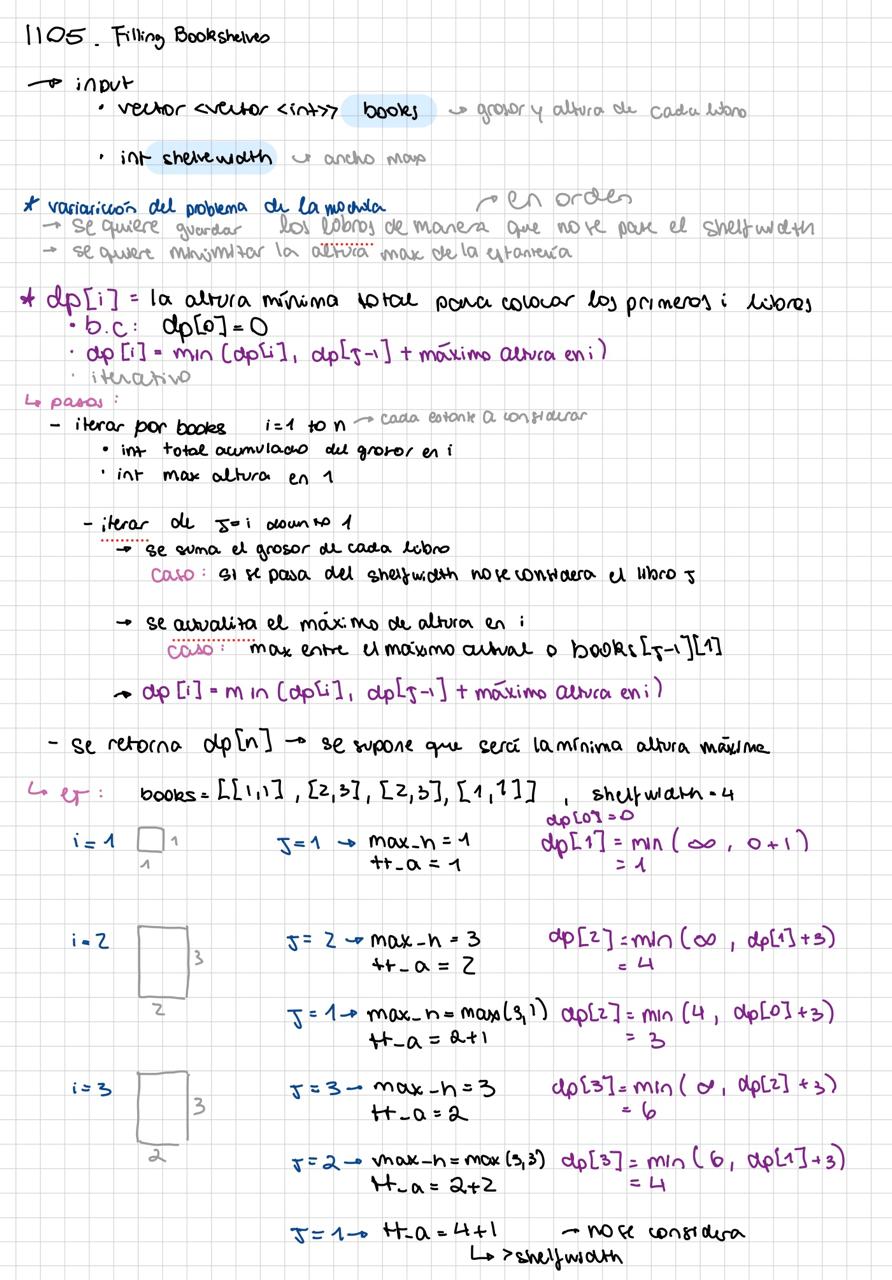 1105. Filling Bookshelves
→ input
• vector <vector <int>> books ↪ grosor y altura de cada libro
• int shelvewidth ↪ ancho max
* variarición del problema de la mochila
→ en orden
→ se quiere guardar los lobros de manera que no se pase el shelfwidth
→ se quiere minimitar la altura max de la estantería
* dp[i] = la altura mínima total para colocar los primeros i libros
• b.c: dp[0] = 0
• dp[i] = min (dp[i], dp[j-1] + máximo altura en i)
• iterativo
↳ pasos:
- iterar por books i=1 to n → cada estante a considerar
• int total acumulado del grosor en i
• int max altura en 1
- iterar de j=i down to 1
→ se suma el grosor de cada libro
caso: si se pasa del shelfwidth no se considera el libro j
→ se actualiza el máximo de altura en i
caso: max entre el máximo actual o books[j-1][1]
→ dp[i] = min (dp[i], dp[j-1] + máximo altura en i)
- se retorna dp[n] → se supone que será la mínima altura máxima
↳ ej: books = [[1,1], [2,3], [2,3], [1,1]], shelfwidth = 4
dp[0] = 0
i = 1 1 j=1 → max_h = 1 dp[1] = min(∞, 0+1)
1 tt_a = 1 = 1
i = 2 j = 2 → max_h = 3 dp[2] = min(∞, dp[1]+3)
3 tt_a = 2 = 4
2 j = 1 → max_h = max(3,1) dp[2] = min(4, dp[0]+3)
tt_a = 2+1 = 3
i = 3 j = 3 → max_h = 3 dp[3] = min(∞, dp[2]+3)
3 tt_a = 2 = 6
2 j = 2 → max_h = max(3,3) dp[3] = min(6, dp[1]+3)
tt_a = 2+2 = 4
j = 1 → tt_a = 4+1 → no se considera
↳ > shelfwidth